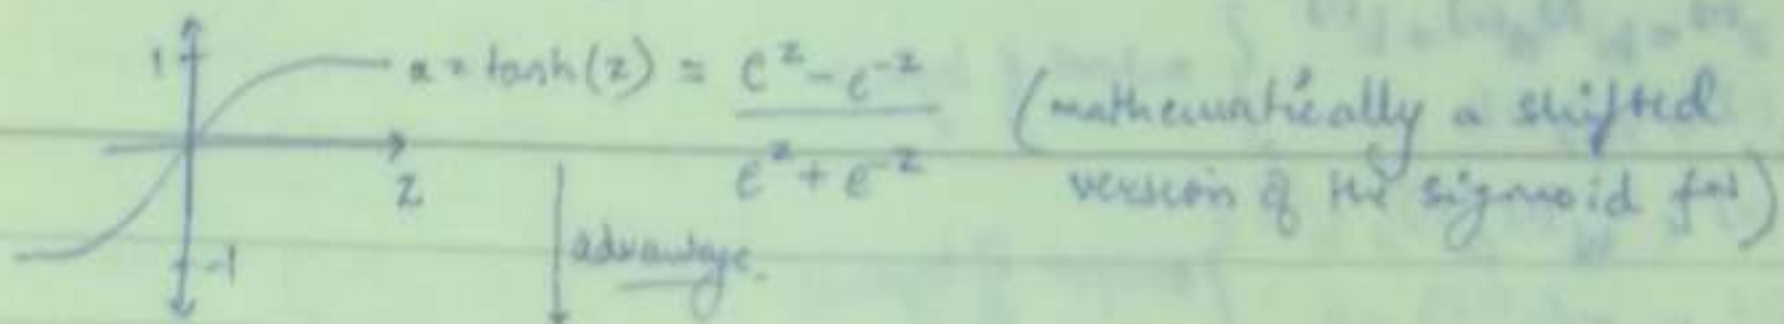 1
a = tanh(z) = e^z - e^-z / e^z + e^-z (mathematically a shifted
version of the sigmoid fn)
z
-1
advantage.